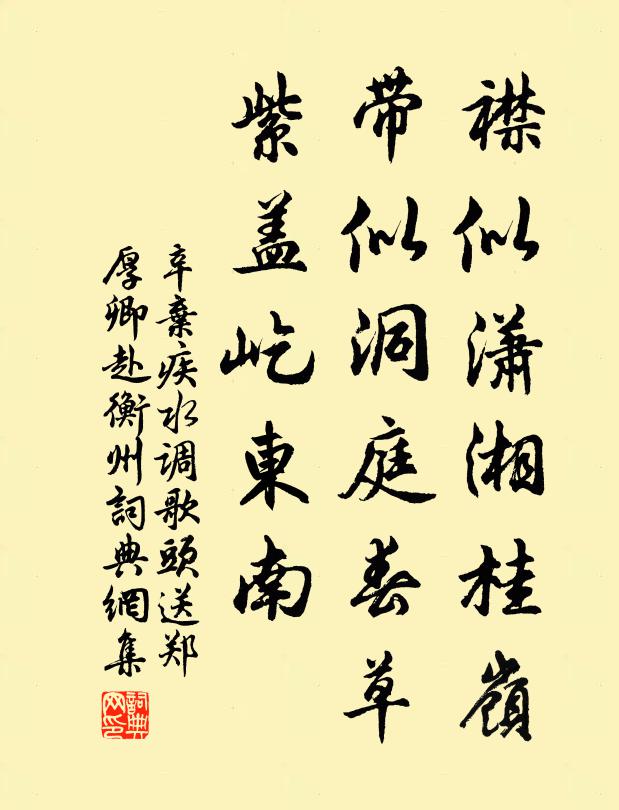 襟似瀟湘桂嶺
带似洞庭春草
紫盖屹東南
辛棄疾水调歌頭送郑
厚卿赴衡州詞典網集
詞典网印